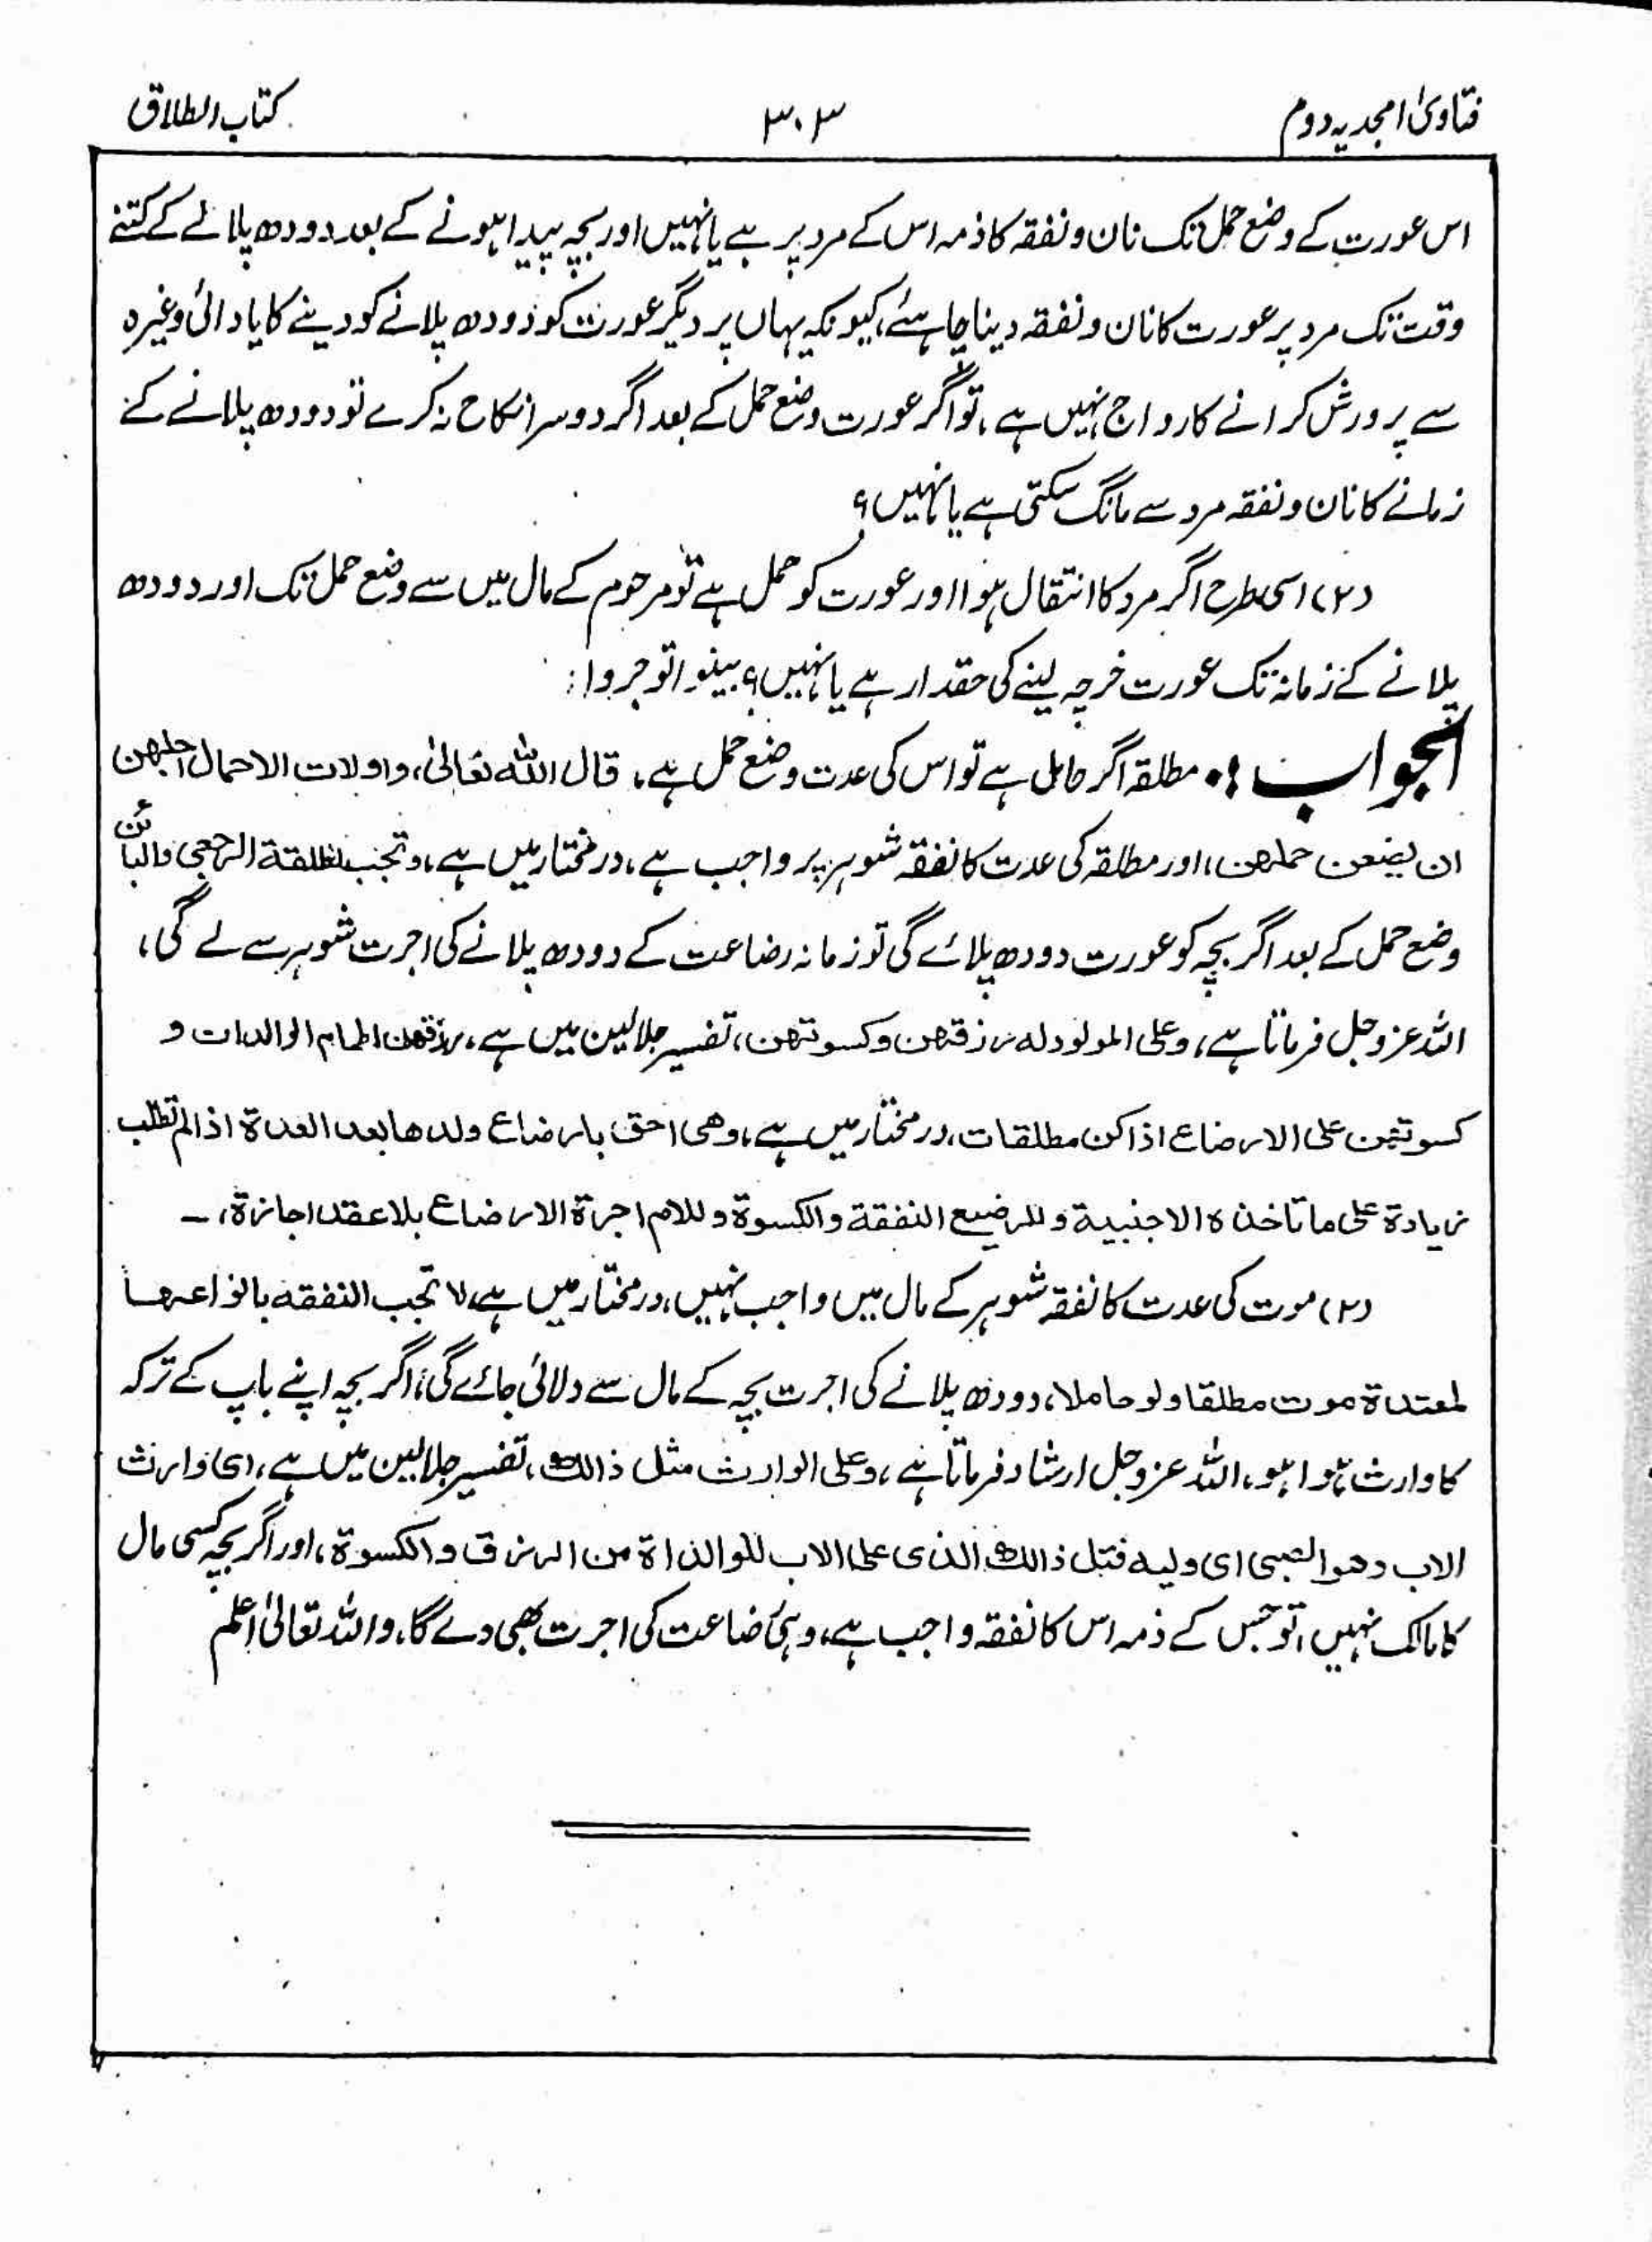 فتاویٰ امجدیہ دوم
۳۰۳
کتاب الطلاق
اس عورت کے وضع حمل تک نان و نفقہ کا ذمہ اس کے مرد پر ہے یا نہیں اور بچہ پیدا ہونے کے بعد دودھ پلانے کے کتنے
وقت تک مرد پر عورت کا نان و نفقہ دینا چاہئے، کیونکہ یہاں پر دیگر عورت کو دودھ پلانے کو دینے کا یا دائی وغیرہ
سے پرورش کرانے کا رواج نہیں ہے، تو اگر عورت وضع حمل کے بعد اگر دوسرا نکاح نہ کرے تو دودھ پلانے کے
زمانے کا نان و نفقہ مرد سے مانگ سکتی ہے یا نہیں؟
(۲) اسی طرح اگر مرد کا انتقال ہوا اور عورت کو حمل ہے تو مرحوم کے مال میں سے وضع حمل تک اور دودھ
پلانے کے زمانہ تک عورت خرچہ لینے کی حقدار ہے یا نہیں؟ بینوا توجروا :
الجواب :۔ مطلقہ اگر حامل ہے تو اس کی عدت وضع حمل ہے، قال اللہ تعالیٰ، واولات الاحمال اجلھن
ان یضعن حملھن، اور مطلقہ کی عدت کا نفقہ شوہر پر واجب ہے، درمختار میں ہے، وتجب لمطلقة الرجعی والبائن
وضع حمل کے بعد اگر بچہ کو عورت دودھ پلائے گی تو زمانہ رضاعت کے دودھ پلانے کی اجرت شوہر سے لے گی،
اللہ عزوجل فرماتا ہے، وعلی المولود لہ رزقھن وکسوتھن، تفسیر جلالین میں ہے، رزقھن اطعام الوالدات و
کسوتھن علی الارضاع اذا کن مطلقات، درمختار میں ہے، وھی احق بارضاع ولدھا بعد العدة اذا لم تطلب
زیادة علی ما تاخذہ الاجنبیة وللرضیع النفقة والکسوة وللام اجرة الارضاع بلا عقد اجارة، ـ
(۲) موت کی عدت کا نفقہ شوہر کے مال میں واجب نہیں، درمختار میں ہے، لا تجب النفقہ بانواعہا
لمعتدة موت مطلقا ولو حاملا، دودھ پلانے کی اجرت بچہ کے مال سے دلائی جائے گی، اگر بچہ اپنے باپ کے ترکہ
کا وارث ہوا ہو، اللہ عزوجل ارشاد فرماتا ہے، وعلی الوارث مثل ذالک، تفسیر جلالین میں ہے، ای وارث
الاب وھو الصبی ای ولیہ فتل ذالک الذی علی الاب للوالداة من الرزق والکسوة، اور اگر بچہ کسی مال
کا مالک نہیں، تو جس کے ذمہ اس کا نفقہ واجب ہے، وہی رضاعت کی اجرت بھی دے گا، واللہ تعالیٰ اعلم